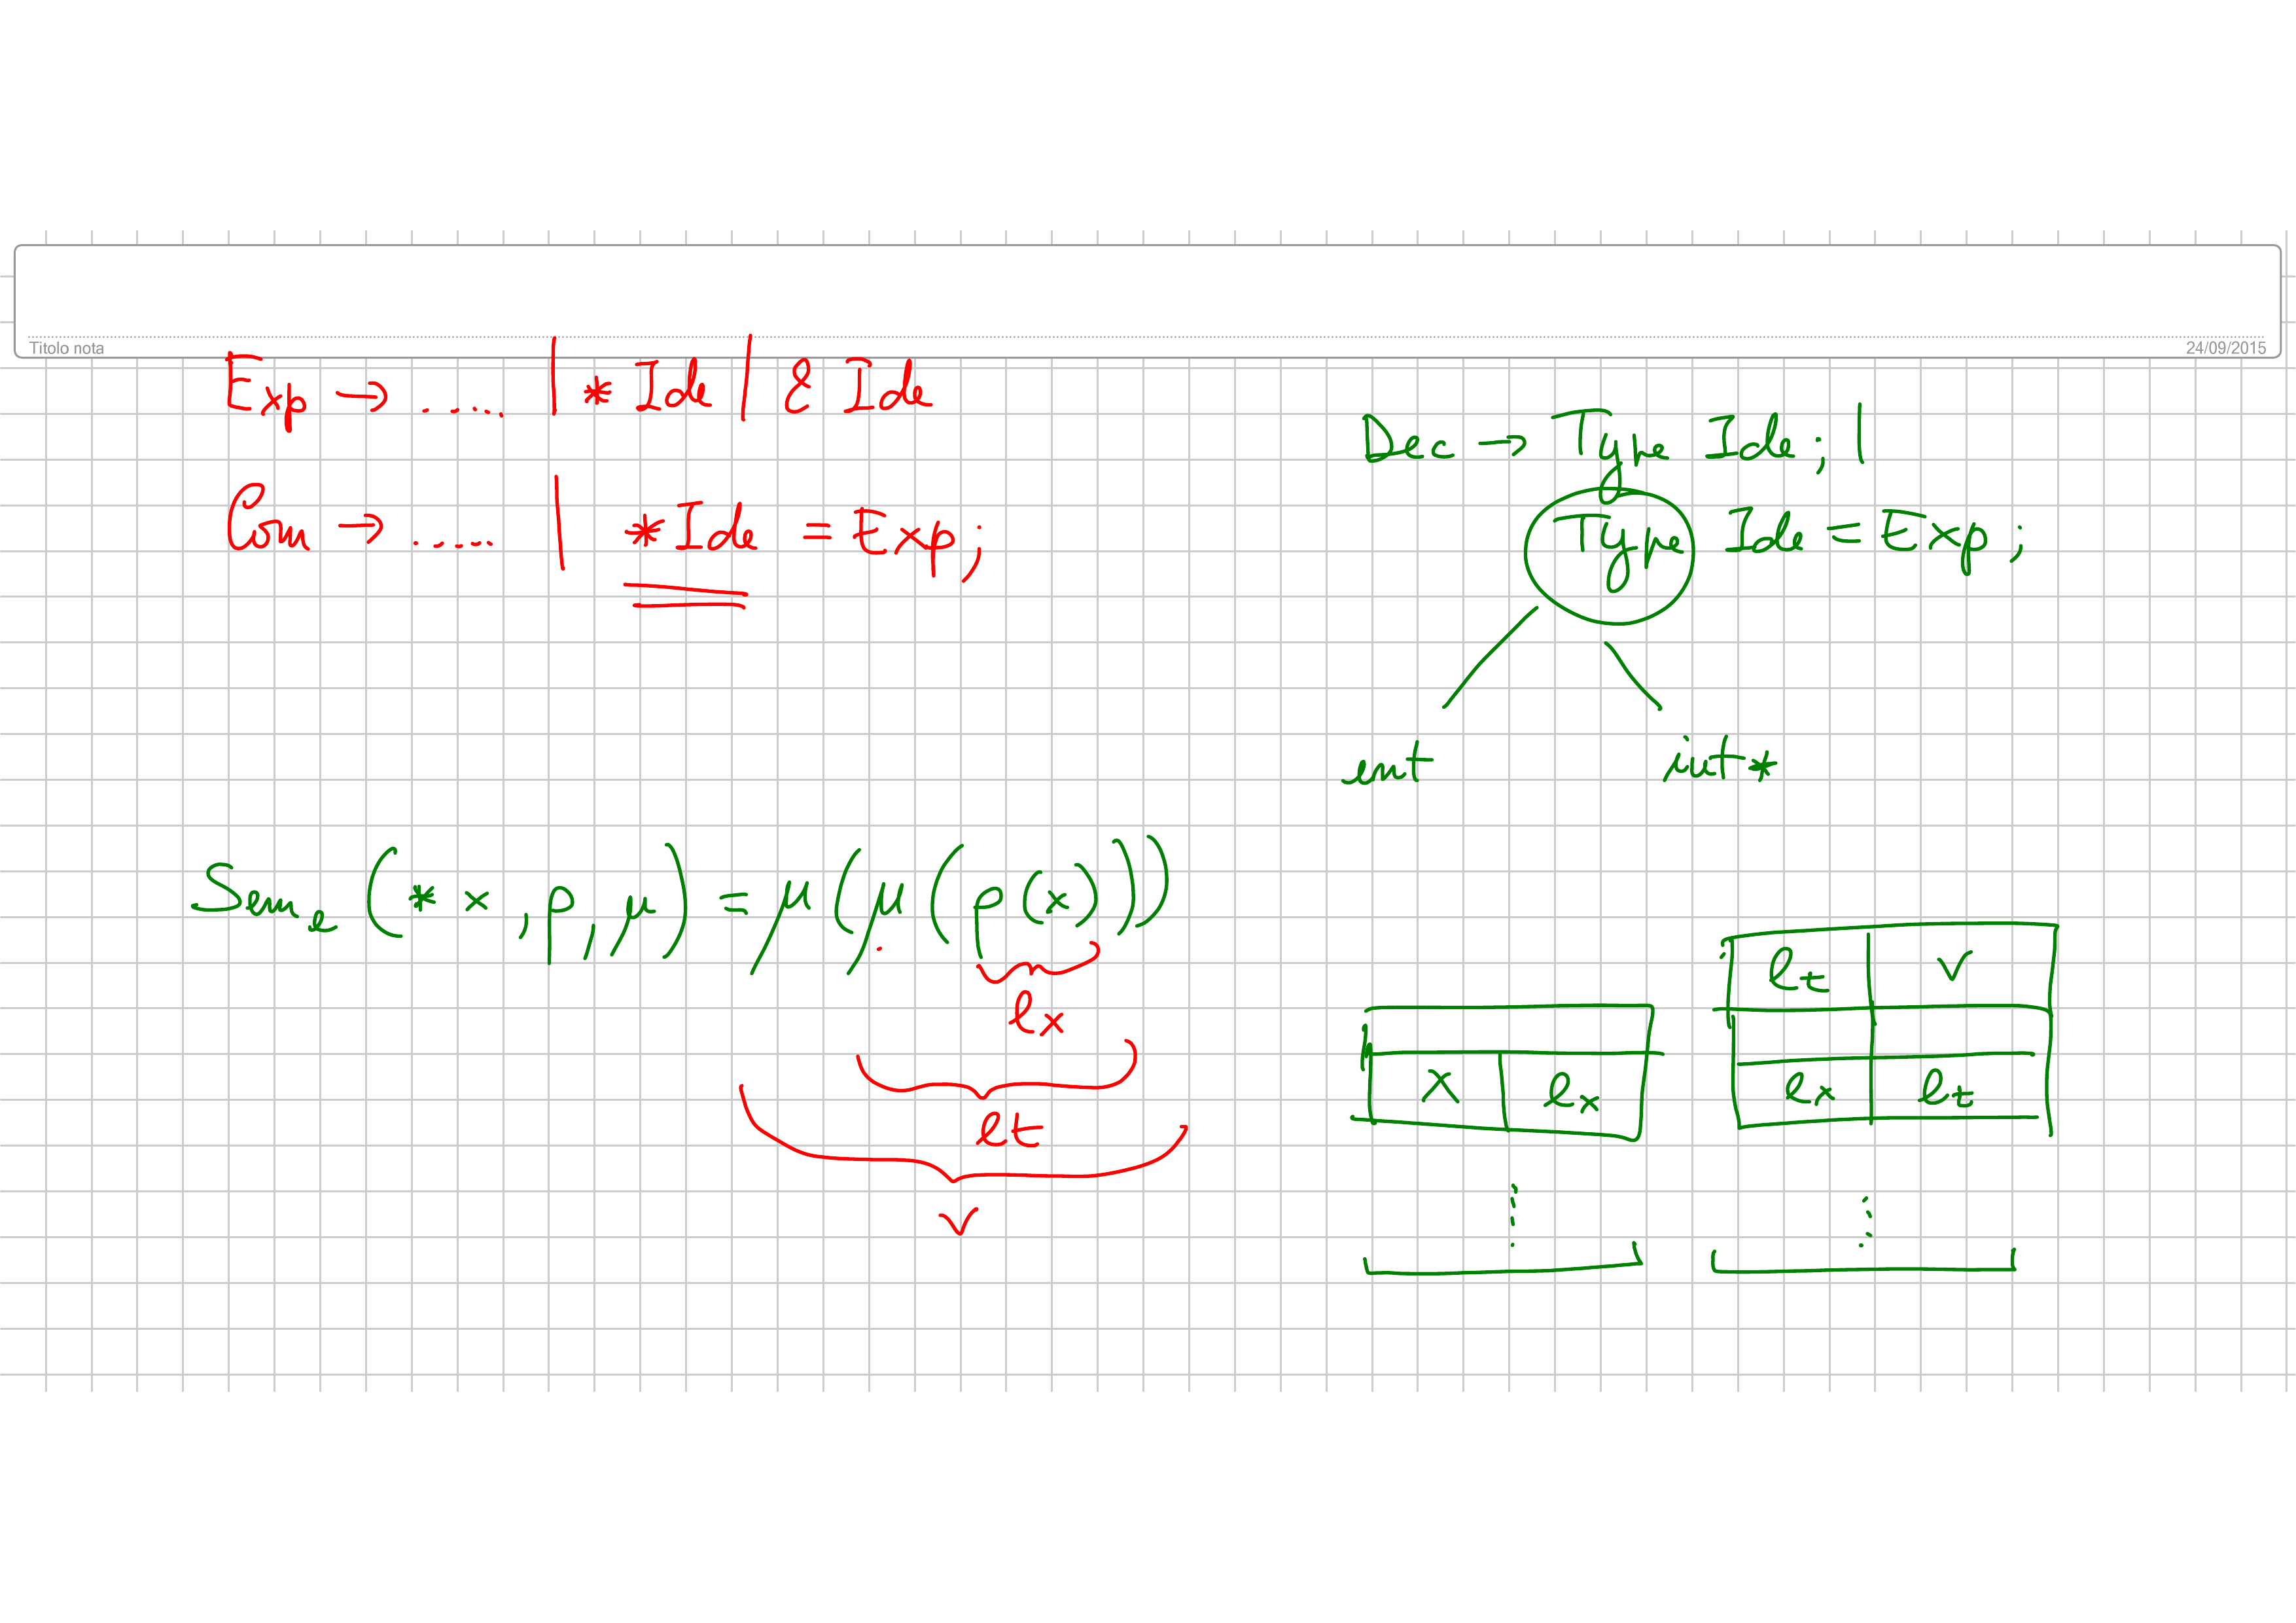 Titolo nota
24/09/2015
Exp → ..... | * Ide | & Ide
Com → ..... | * Ide = Exp;
Dec → Type Ide; |
Type Ide = Exp;
int int*
Sem_e (* x, ρ, μ) = μ (μ (ρ (x)))
l_x
l_t
v
x l_x
l_t v
l_x l_t